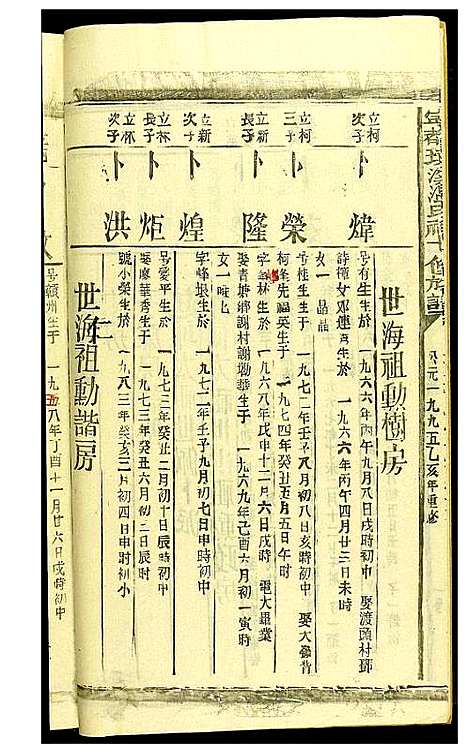 公元一九九五乙亥年重修
世海祖動樹房
立柯次子
卜煒
号有生生於一九六六年丙午九月八日戌時初中 娶渡頭村鄧
詩檀女鄧連秀生於一九六六年丙午四月廿三日未時
女一 晶晶
立柯三子
卜榮
号桂生生于一九七二年壬子八月初八日亥時初中 娶大
柯逢先福英生于一九七四年癸丑五月五日午時
立新長子
卜隆
字峰林生於一九六八年戊申十一月六日戌時 電大畢業
娶青塘鄉謝村謝坳華生于一九六九年己酉六月初一寅時
女一
立新次子
卜煌
字峰垠生於一九七二年壬子九月初七日申時初中
立林長子
卜炬
号愛平生於一九七三年癸丑二月初十日辰時初中
娶廖華秀生于一九七三年癸丑六月初二日辰时
立林次子
卜洪
號小榮生於一九八三年癸亥二月初四日申时初小
世海祖動諧房
号贛州生于一九五八年丁酉十一月廿六日戌時初中